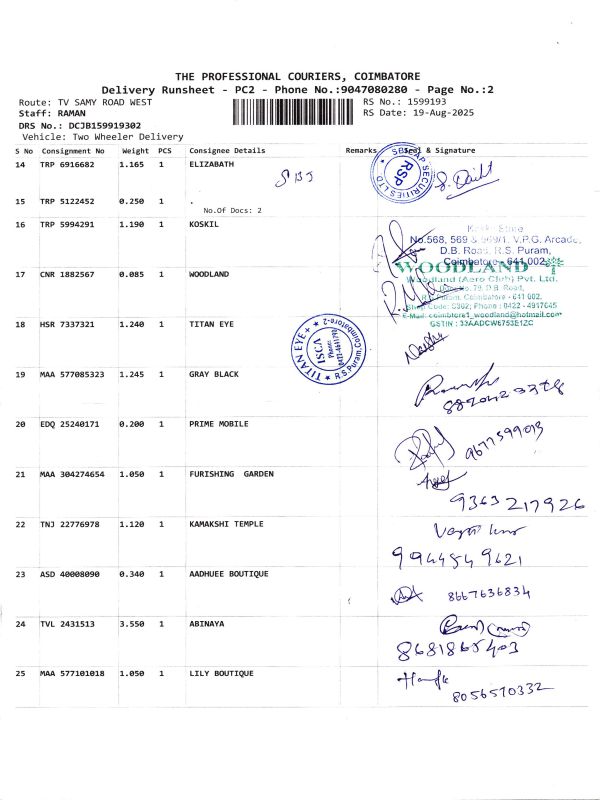 THE PROFESSIONAL COURIERS, COIMBATORE
Delivery Runsheet - PC2 - Phone No.:9047080280 - Page No.:2
Route: TV SAMY ROAD WEST
RS No.: 1599193
Staff: RAMAN
RS Date: 19-Aug-2025
DRS No.: DCJB159919302
Vehicle: Two Wheeler Delivery
S No Consignment No Weight PCS Consignee Details Remarks Seal & Signature
14 TRP 6916682 1.165 1 ELIZABATH
SBI
RSP
15 TRP 5122452 0.250 1 .
No.Of Docs: 2
16 TRP 5994291 1.190 1 KOSKIL
No.568, 569 & 569/1, V.P.G. Arcade,
D.B. Road, R.S. Puram,
Coimbatore - 641 002
17 CNR 1882567 0.085 1 WOODLAND
WOODLAND
Woodland (Aero Club) Pvt. Ltd.
D.B. Road,
Coimbatore - 641 002.
Phone : 0422 - 4917645
E-Mail: coimbtore1_woodland@hotmail.com
GSTIN : 33AADCW6753E1ZC
18 HSR 7337321 1.240 1 TITAN EYE
TITAN EYE+
R.S.Puram,Coimbatore-2
ISCA
Phone:
19 MAA 577085323 1.245 1 GRAY BLACK
20 EDQ 25240171 0.200 1 PRIME MOBILE
9677599013
21 MAA 304274654 1.050 1 FURISHING GARDEN
9363217926
22 TNJ 22776978 1.120 1 KAMAKSHI TEMPLE
9944549621
23 ASD 40008090 0.340 1 AADHUEE BOUTIQUE
8667636834
24 TVL 2431513 3.550 1 ABINAYA
8681865403
25 MAA 577101018 1.050 1 LILY BOUTIQUE
8056570332